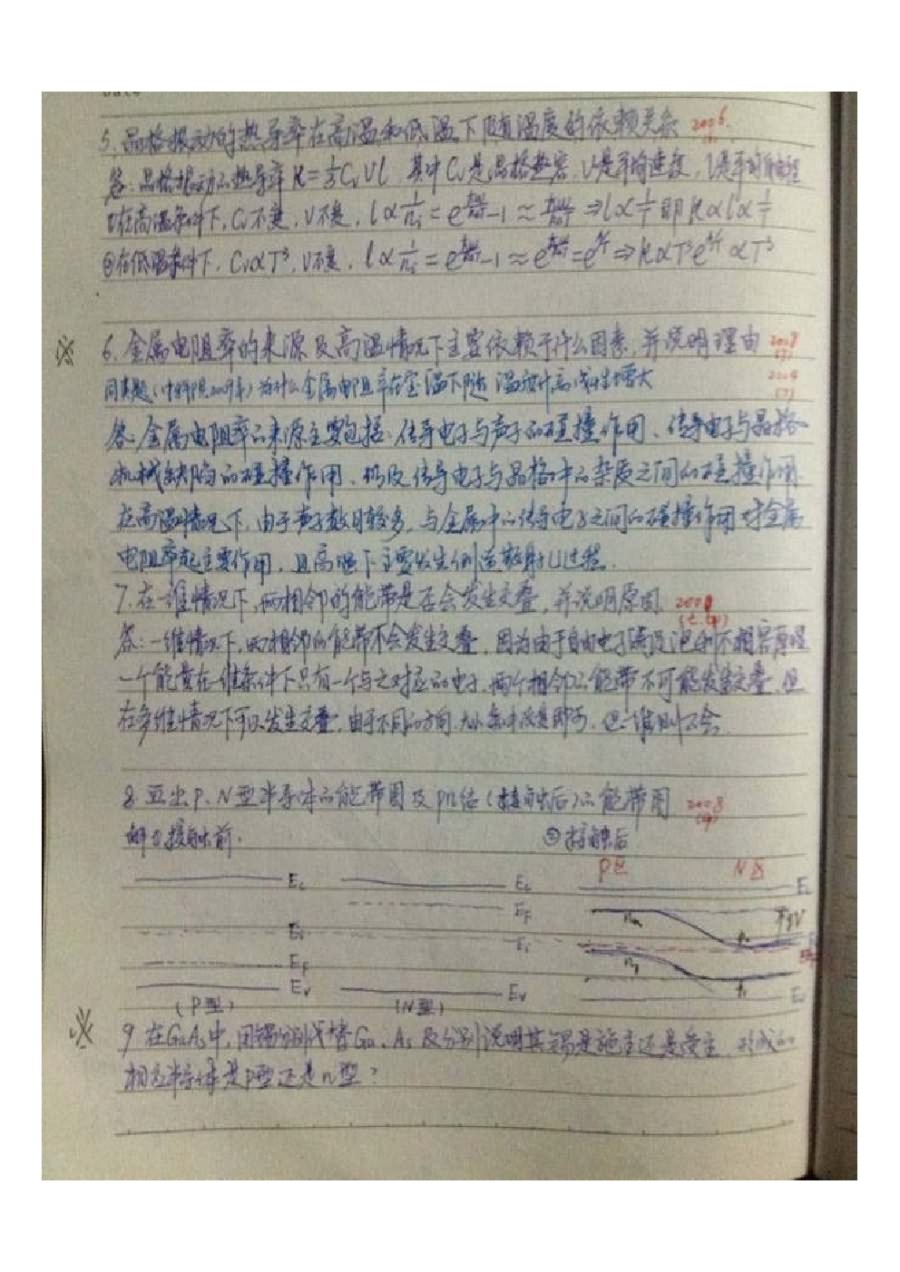 5. 晶格振动的热导率在高温和低温下随温度的依赖关系 2006
答: 晶格振动的热导率 K=⅓CᵥVl 其中Cᵥ是晶格热容, V是平均速度, l是平均自由程
①在高温条件下, Cᵥ不变, V不变, l∝ ≈ ⇒l∝1/T 即 K∝l∝1/T
②在低温条件下, Cᵥ∝T³, V不变, l∝ ∝T³
※ 6. 金属电阻率的来源及高温情况下主要依赖于什么因素, 并说明理由
同类题 为什么金属电阻率在室温下随温度升高 增大
答: 金属电阻率的来源主要包括: 传导电子与声子的碰撞作用、传导电子与晶格
机械缺陷的碰撞作用、以及传导电子与晶格中的杂质之间的碰撞作用
在高温情况下, 由于声子数目较多, 与金属中的传导电子之间的碰撞作用对金属
电阻率起主要作用, 且高温下主要发生倒逆散射U过程.
7. 在一维情况下, 两相邻的能带是否会发生交叠, 并说明原因.
答: 一维情况下, 两相邻的能带不会发生交叠, 因为由于自由电子 泡利不相容原理
一个能量在一维条件下只有一个与之对应的电子, 两个相邻的能带不可能发生交叠, 但
在多维情况下可以发生交叠, 由于不同的方向, 一维则不会.
8. 画出P、N型半导体的能带图及pn结(接触后)的能带图 2008
解①接触前: ②接触后
P区 N区
Ec Ec
EF
Ei Ei
EF
Ev Ev
(P型) (N型)
※ 9. 在GaAs中, 用锗分别代替Ga、As 及分别说明其锗是施主还是受主, 形成的
相应半导体是p型还是n型?